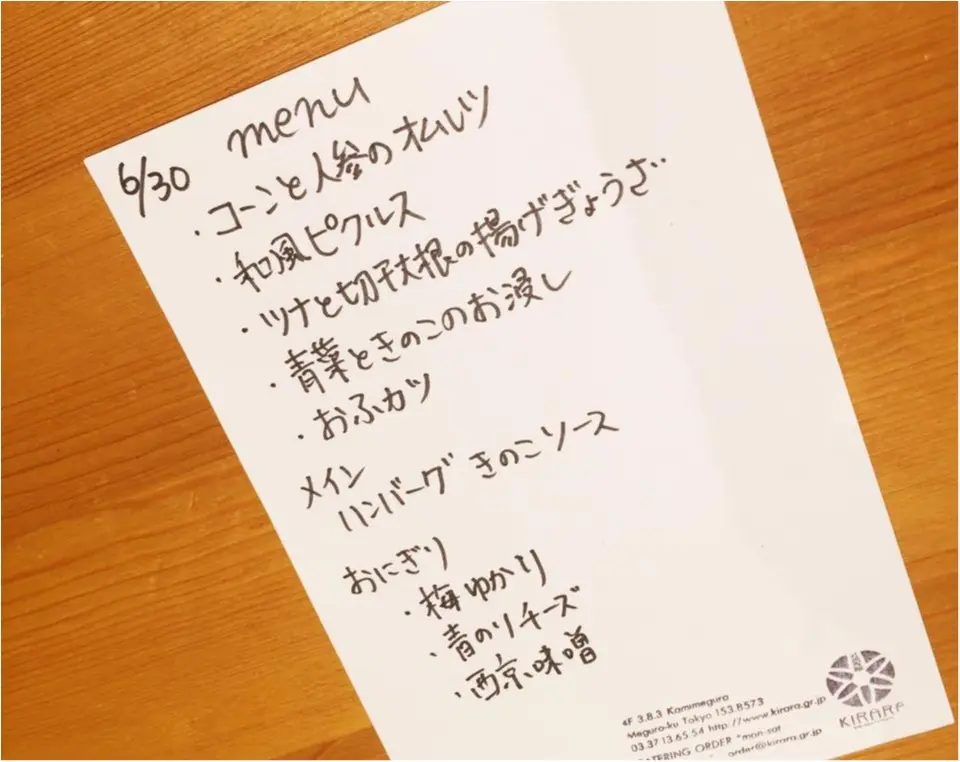 menu
6/30
・コーンと人参のオムレツ
・和風ピクルス
・ツナと切干大根の揚げぎょうざ
・青葉ときのこのお浸し
・おふカツ
メイン
ハンバーグ きのこソース
おにぎり
・梅ゆかり
・青のりチーズ
・西京味噌
4F 3.8.3 Kamimegura
Meguro-ku Tokyo 153.8573
03.3713.65.54 http://www.kirara.gr.jp
CATERING ORDER *mon-sat
order@kirara.gr.jp
KIRARA